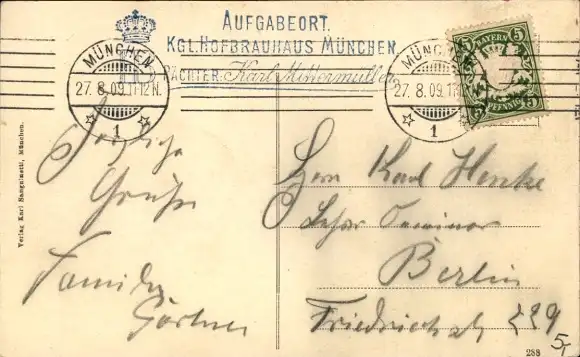 AUFGABEORT.
KGL. HOFBRAUHAUS MÜNCHEN
PÄCHTER: Karl Mittermüller
MÜNCHEN
27. 8. 09. 11-12 N.
1
MÜNCHEN
27. 8. 09. 11
1
BAYERN
5 5
5 5
PFENNIG
Verlag Karl Sanguinetti, München.
Herzliche
Grüße
Familie
Gärtner
Herrn Karl Henke
Berlin
Friedrichstr 229
5,
288